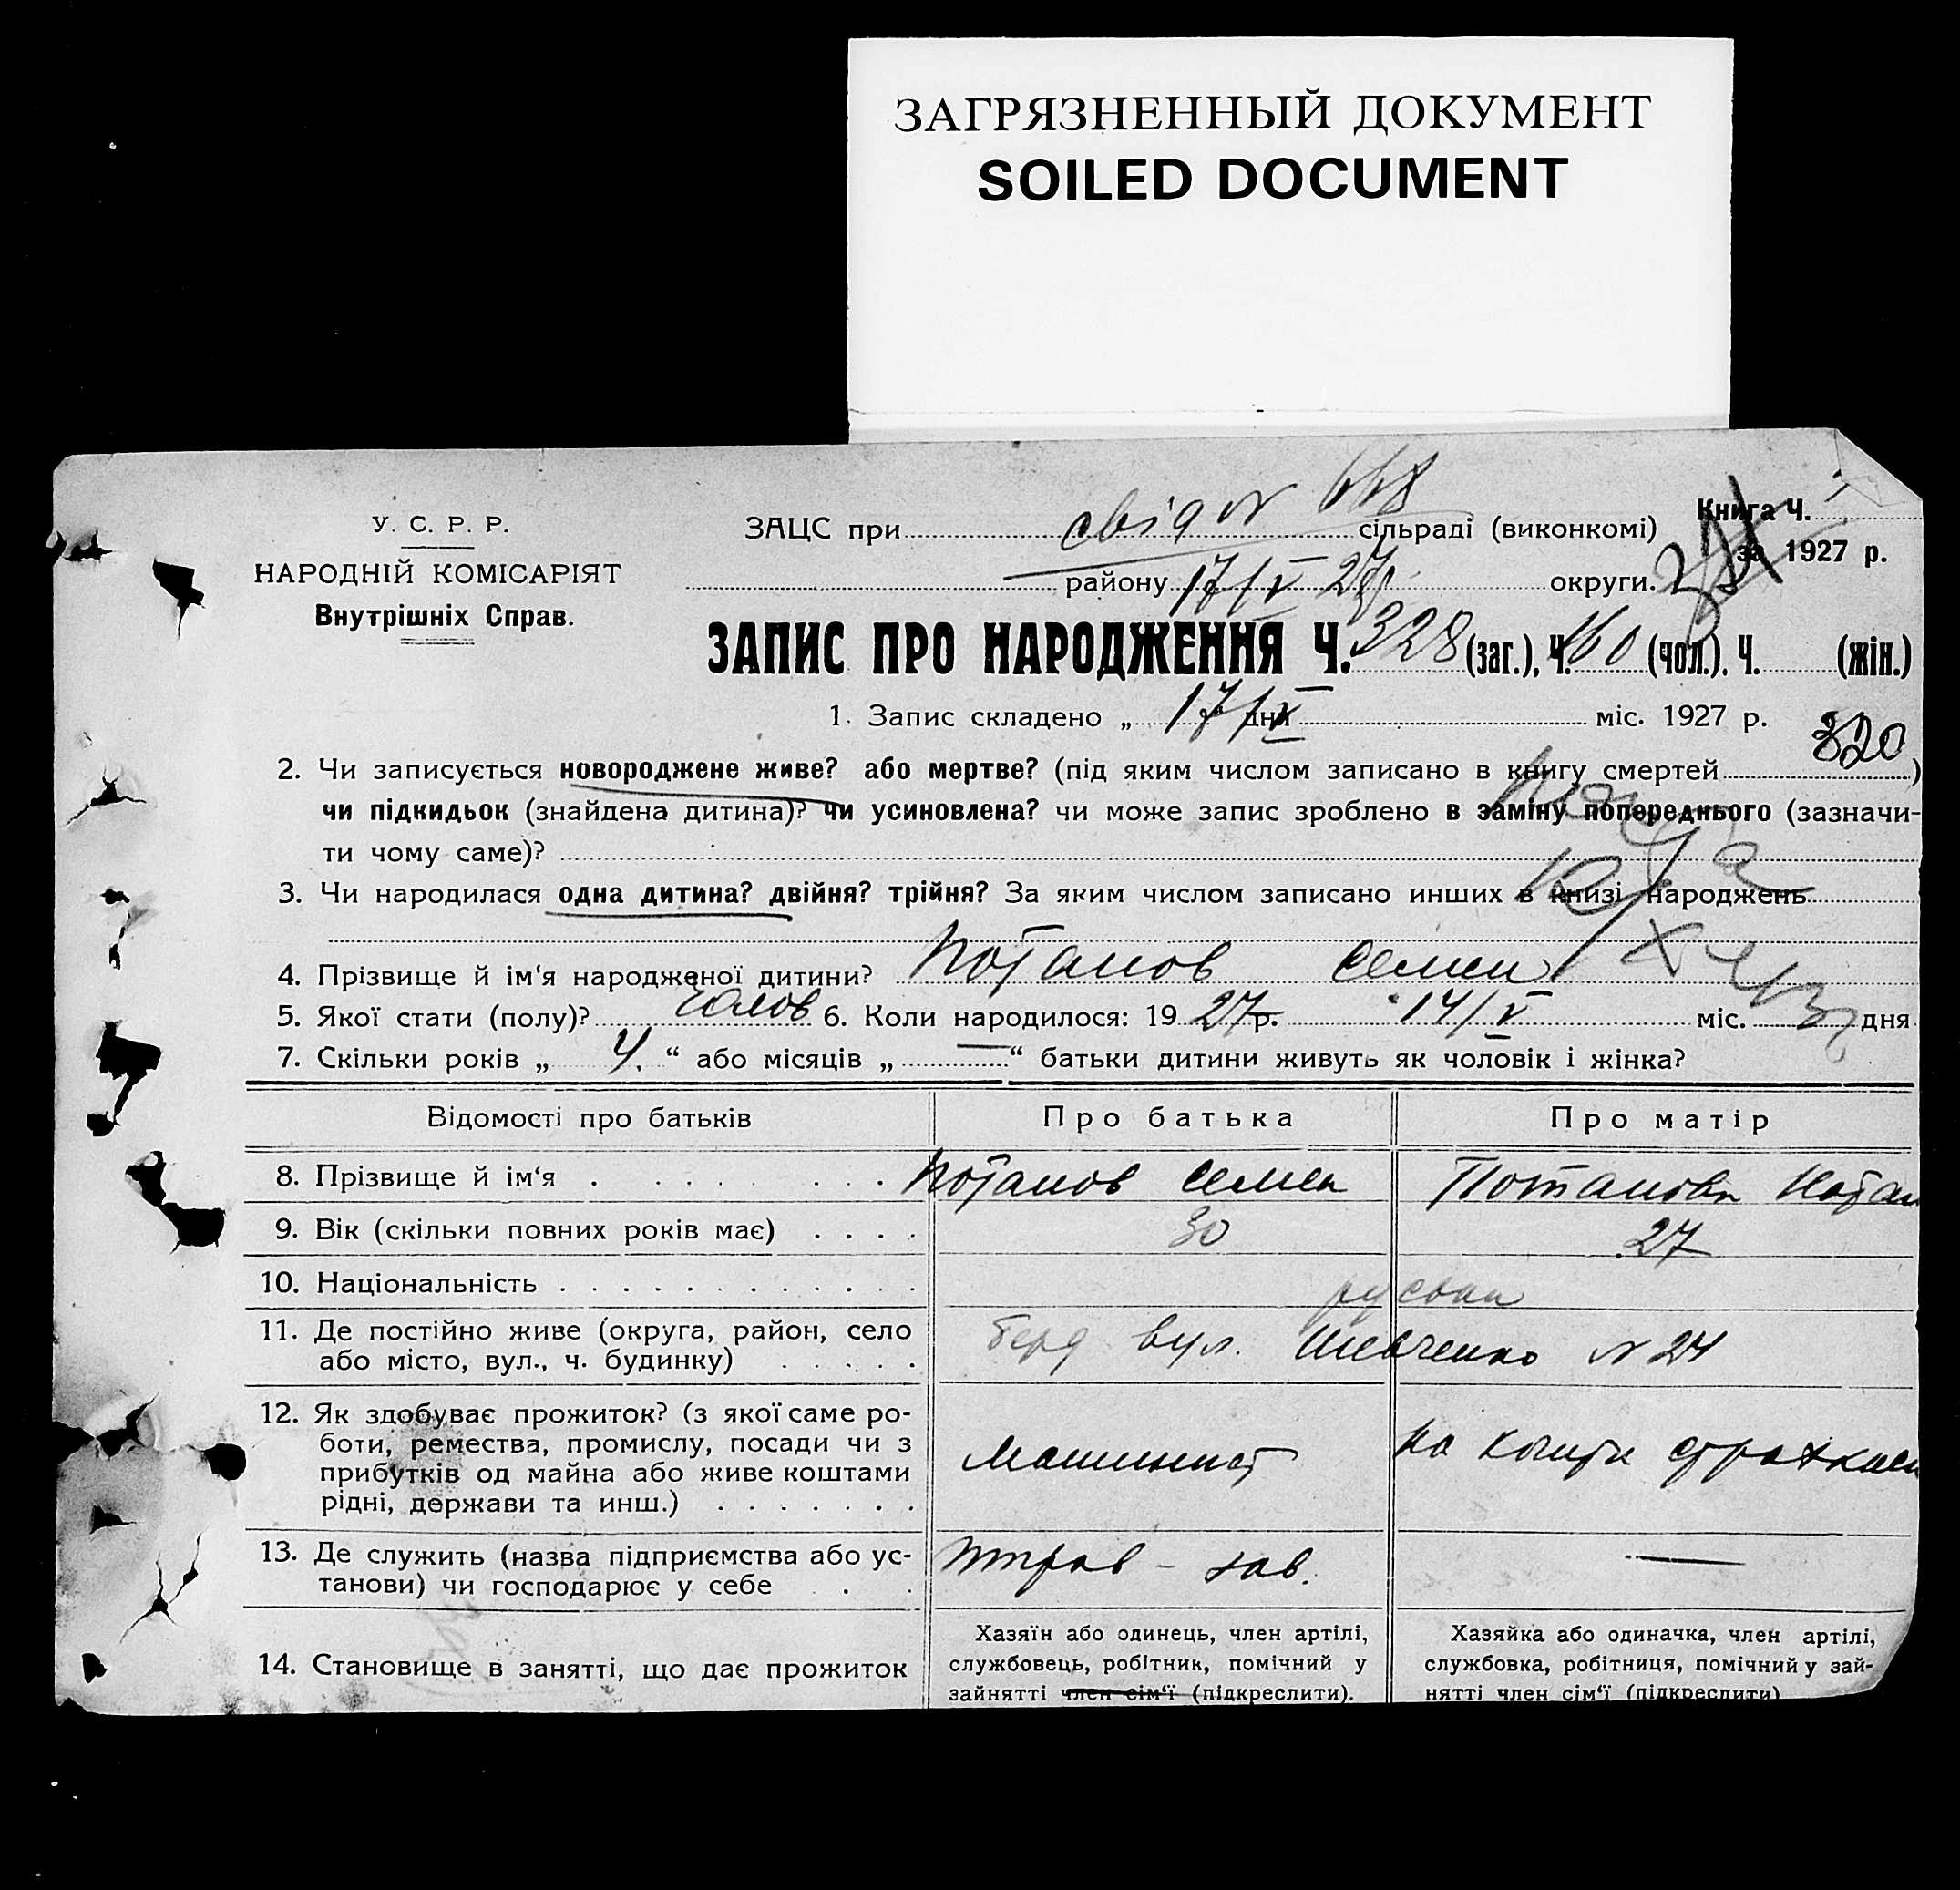 ЗАГРЯЗНЕННЫЙ ДОКУМЕНТ
SOILED DOCUMENT
У. С. Р. Р.
НАРОДНІЙ КОМІСАРІЯТ
Внутрішніх Справ.
ЗАЦС при свід № 668 сільраді (виконкомі)
Книга Ч.
за 1927 р.
району 17/V 27р округи.
ЗАПИС ПРО НАРОДЖЕННЯ Ч. 328 (заг.), Ч. 160 (чол.). Ч. (жін.)
1. Запис складено „ 17/V дня міс. 1927 р.
320
2. Чи записується новороджене живе? або мертве? (під яким числом записано в книгу смертей )
чи підкидьок (знайдена дитина)? чи усиновлена? чи може запис зроблено в заміну попереднього (зазначи-
ти чому саме)?
3. Чи народилася одна дитина? двійня? трійня? За яким числом записано инших в книзі народжень
4. Прізвище й ім‘я народженої дитини? Потапов Семен
5. Якої стати (полу)? чолов 6. Коли народилося: 1927 р. 14/V міс. дня
7. Скільки років „ 4. “ або місяців „ — “ батьки дитини живуть як чоловік і жінка?
Відомості про батьків Про батька Про матір
8. Прізвище й ім‘я Потапов Семен Потапова Натал
9. Вік (скільки повних років має) 30 27
10. Національність руськи
11. Де постійно живе (округа, район, село
або місто, вул., ч. будинку) берд вул. Шевченко № 24
12. Як здобуває прожиток? (з якої саме ро-
боти, ремества, промислу, посади чи з
прибутків од майна або живе коштами
рідні, держави та инш.) Машинист на кошти
13. Де служить (назва підприємства або ус-
танови) чи господарює у себе зав. —
14. Становище в занятті, що дає прожиток
Хазяїн або одинець, член артілі,
службовець, робітник, помічний у
зайнятті член сім‘ї (підкреслити).
Хазяйка або одиначка, член артілі,
службовка, робітниця, помічний у зай-
нятті член сім‘ї (підкреслити)